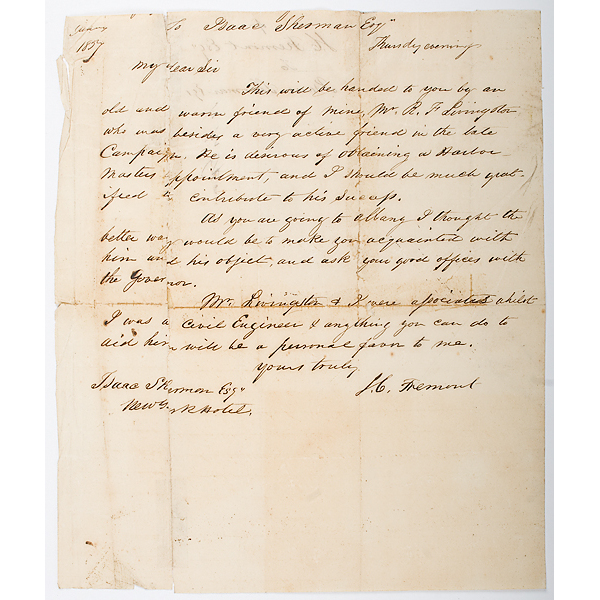 To Isaac Sherman Esqr
1857
Thursdy evening
My dear Sir
This will be handed to you by an
old and warm friend of mine, Mr. R. F Livingston
who was besides a very active friend in the late
Campaign. He is desirous of obtaining a Harbor
Masters appointment, and I should be much grat-
ified to contribute to his sucess.
As you are going to albany I thought the
better way would be to make you acquainted with
him and his object, and ask your good offices with
the Governor.
Mr. Livingston & I were associated whilst
I was a Civil Engineer & anything you can do to
aid him will be a personal favor to me.
yours truly
J. C. Fremont
Isaac Sherman Esqr
New York Hotel.